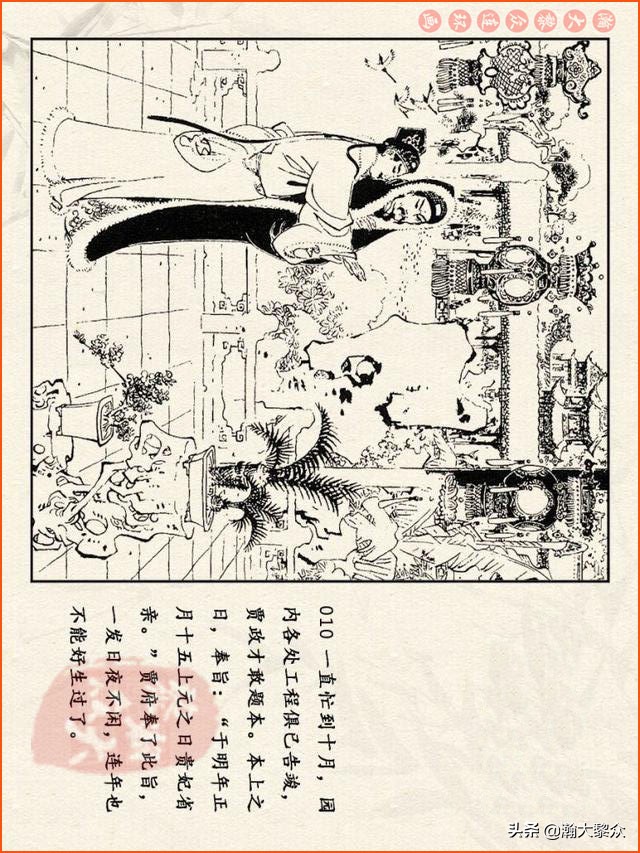 瀚大黎众连环画
010 一直忙到十月，园
内各处工程俱已告竣，
贾政才敢题本。本上之
日，奉旨：“于明年正
月十五上元之日贵妃省
亲。”贾府奉了此旨，
一发日夜不闲，连年也
不能好生过了。
头条 @瀚大黎众